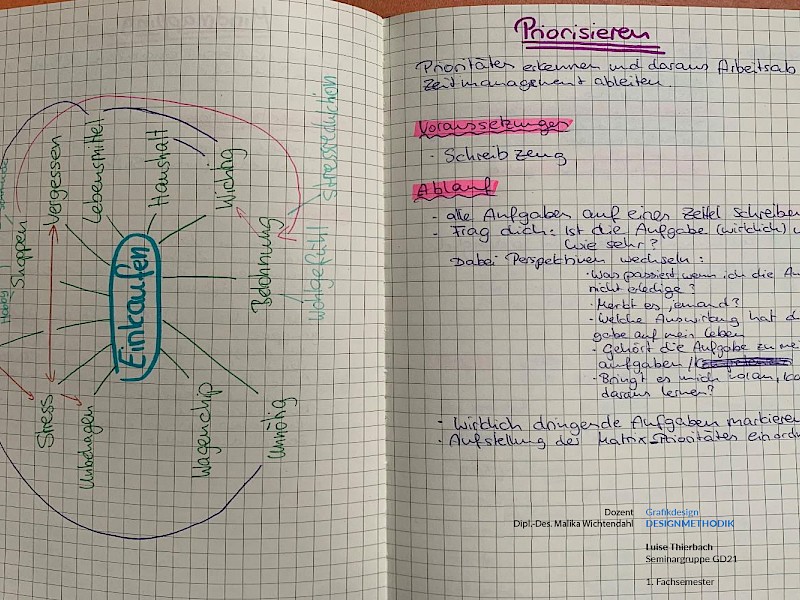 Shoppen
Vergessen
Lebensmittel
Haushalt
Wichtig
Belohnung
Stressreduktion
Wohlgefühl
Einkaufen
Stress
Unbehagen
Wagenchip
Unnötig
Hobby
Priorisieren
Prioritäten erkennen und daraus Arbeitsab
Zeitmanagement ableiten.
Voraussetzungen
· Schreibzeug
Ablauf
- alle Aufgaben auf einen Zettel schreiben
- Frag dich: Ist die Aufgabe (wirklich) w
Wie sehr?
Dabei Perspektiven wechseln:
· Was passiert, wenn ich die Au
nicht erledige?
· Merkt es jemand?
· Welche Auswirkung hat d
gabe auf mein Leben
· Gehört die Aufgabe zu mei
aufgaben /
· Bringt es mich voran, ka
daraus lernen?
- Wirklich dringende Aufgaben markieren
- Aufstellung der Matrix - Prioritäten einordn
Dozent
Dipl.-Des. Malika Wichtendahl
Grafikdesign
DESIGNMETHODIK
Luise Thierbach
Seminargruppe GD21
1. Fachsemester